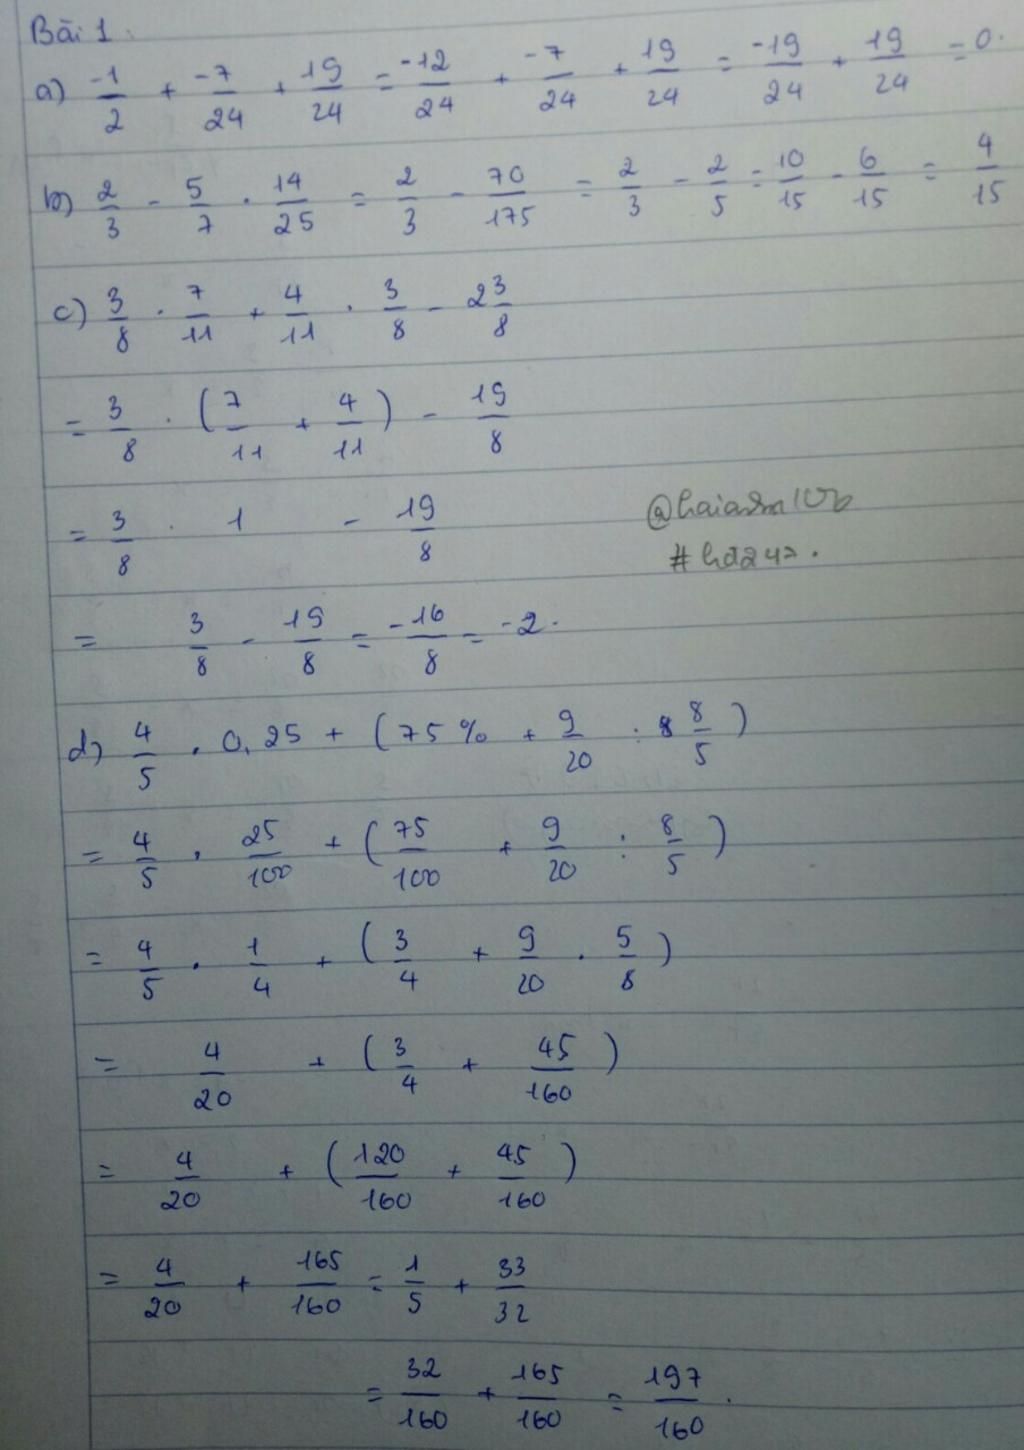 Bài 1.
a) -1/2 + -7/24 + 19/24 = -12/24 + -7/24 + 19/24 = -19/24 + 19/24 = 0.
b) 2/3 - 5/7 . 14/25 = 2/3 - 70/175 = 2/3 - 2/5 = 10/15 - 6/15 = 4/15
c) 3/8 . 7/11 + 4/11 . 3/8 - 2 3/8
= 3/8 . (7/11 + 4/11) - 19/8
= 3/8 . 1 - 19/8
= 3/8 - 19/8 = -16/8 = -2.
d) 4/5 . 0,25 + (75% + 9/20 : 8/5)
= 4/5 . 25/100 + (75/100 + 9/20 : 8/5)
= 4/5 . 1/4 + (3/4 + 9/20 . 5/8)
= 4/20 + (3/4 + 45/160)
= 4/20 + (120/160 + 45/160)
= 4/20 + 165/160 = 1/5 + 33/32
= 32/160 + 165/160 = 197/160.